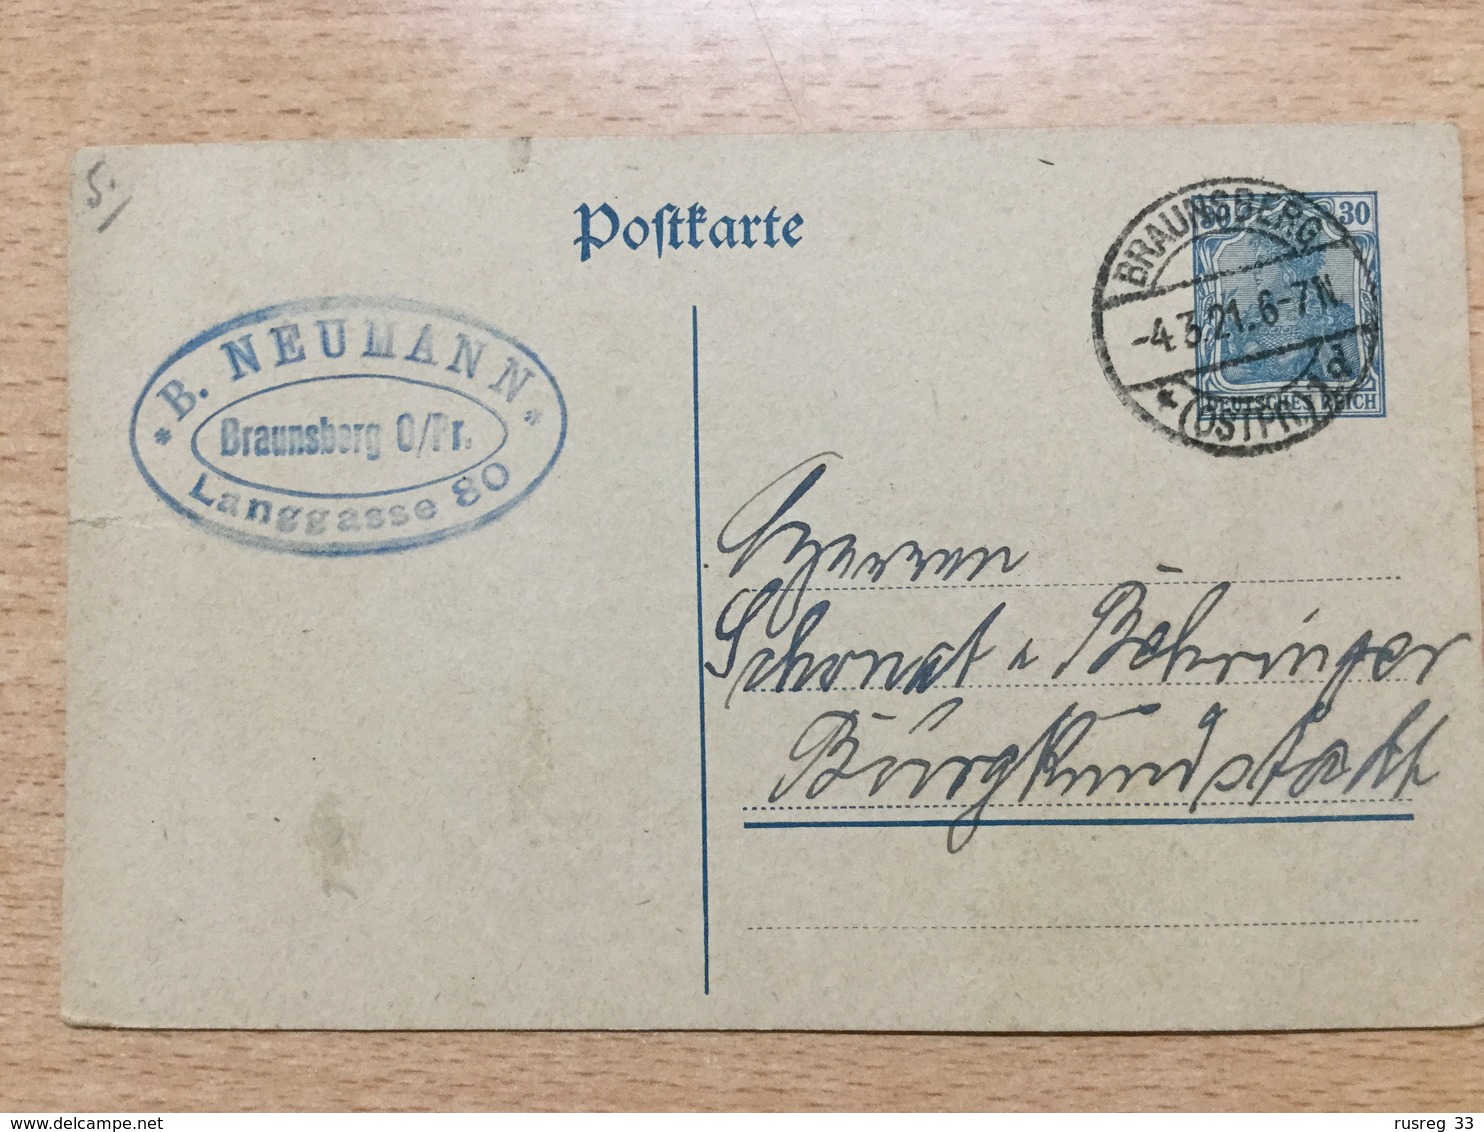 5.
Postkarte
30
DEUTSCHES REICH
BRAUNSBERG
-4.3.21.6-7N
* (OSTPR.) 1d
* B. NEUMANN *
Braunsberg O/Pr.
Langgasse 80
Herren
u Böhringer
Burgkundstadt
rusreg 33